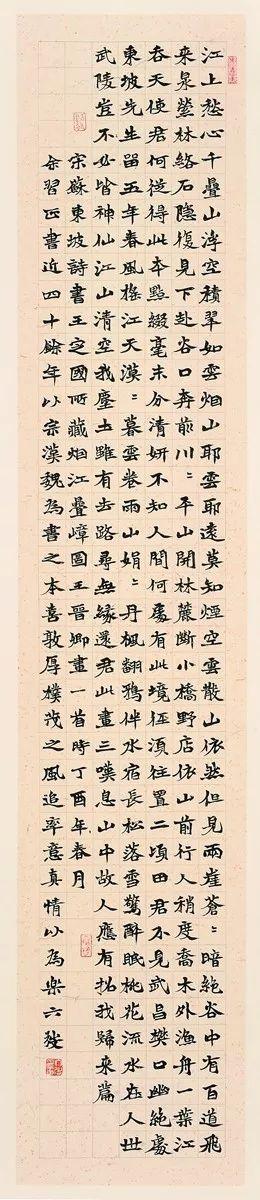 江上愁心千疊山浮空積翠如雲烟山耶雲耶遠莫知煙空雲散山依然但見兩崖蒼〻暗絕谷中有百道飛
来泉縈林絡石隱復見下赴谷口奔前川〻平山開林麓斷小橋野店依山前行人稍度喬木外漁舟一葉江
吞天使君何從得此本點綴毫末分清妍不知人間何處有此境徑須往置二頃田君不見武昌樊口幽絕處
東坡先生留五年春風搖江天漠〻暮雲卷雨山娟〻丹楓翻鴉伴水宿長松落雪驚醉眠桃花流水在人世
武陵豈不必皆神仙江山清空我塵土雖有去路尋無緣還君此畫三嘆息山中故人應有招我歸來篇
宋蘇東坡詩書王定國所藏烟江疊嶂圖王晉卿畫一首時丁酉年春月
余習正書近四十餘年以宗漢魏為書之本喜敦厚樸茂之風追率意真情以為樂六發